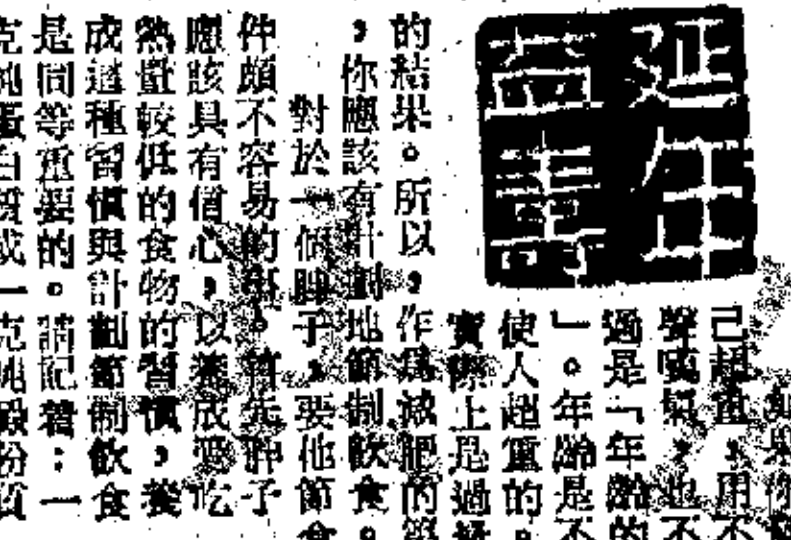 延年
益壽
如果你
己超重，用不
聲嘆氣，也不
過是「年齡的
」。年齡是不
使人超重的。
實際上是過
的結果。所以，作爲減肥的
，你應該有計劃地節制飲食。
對於一個胖子，要他節食
件頗不容易的事。首先胖子
應該具有信心，以養成愛吃
熱量較低的食物的習慣，養
成這種習慣與計劃節制飲食
是同等重要的。請記着：一
克純蛋白質或一克純澱粉質